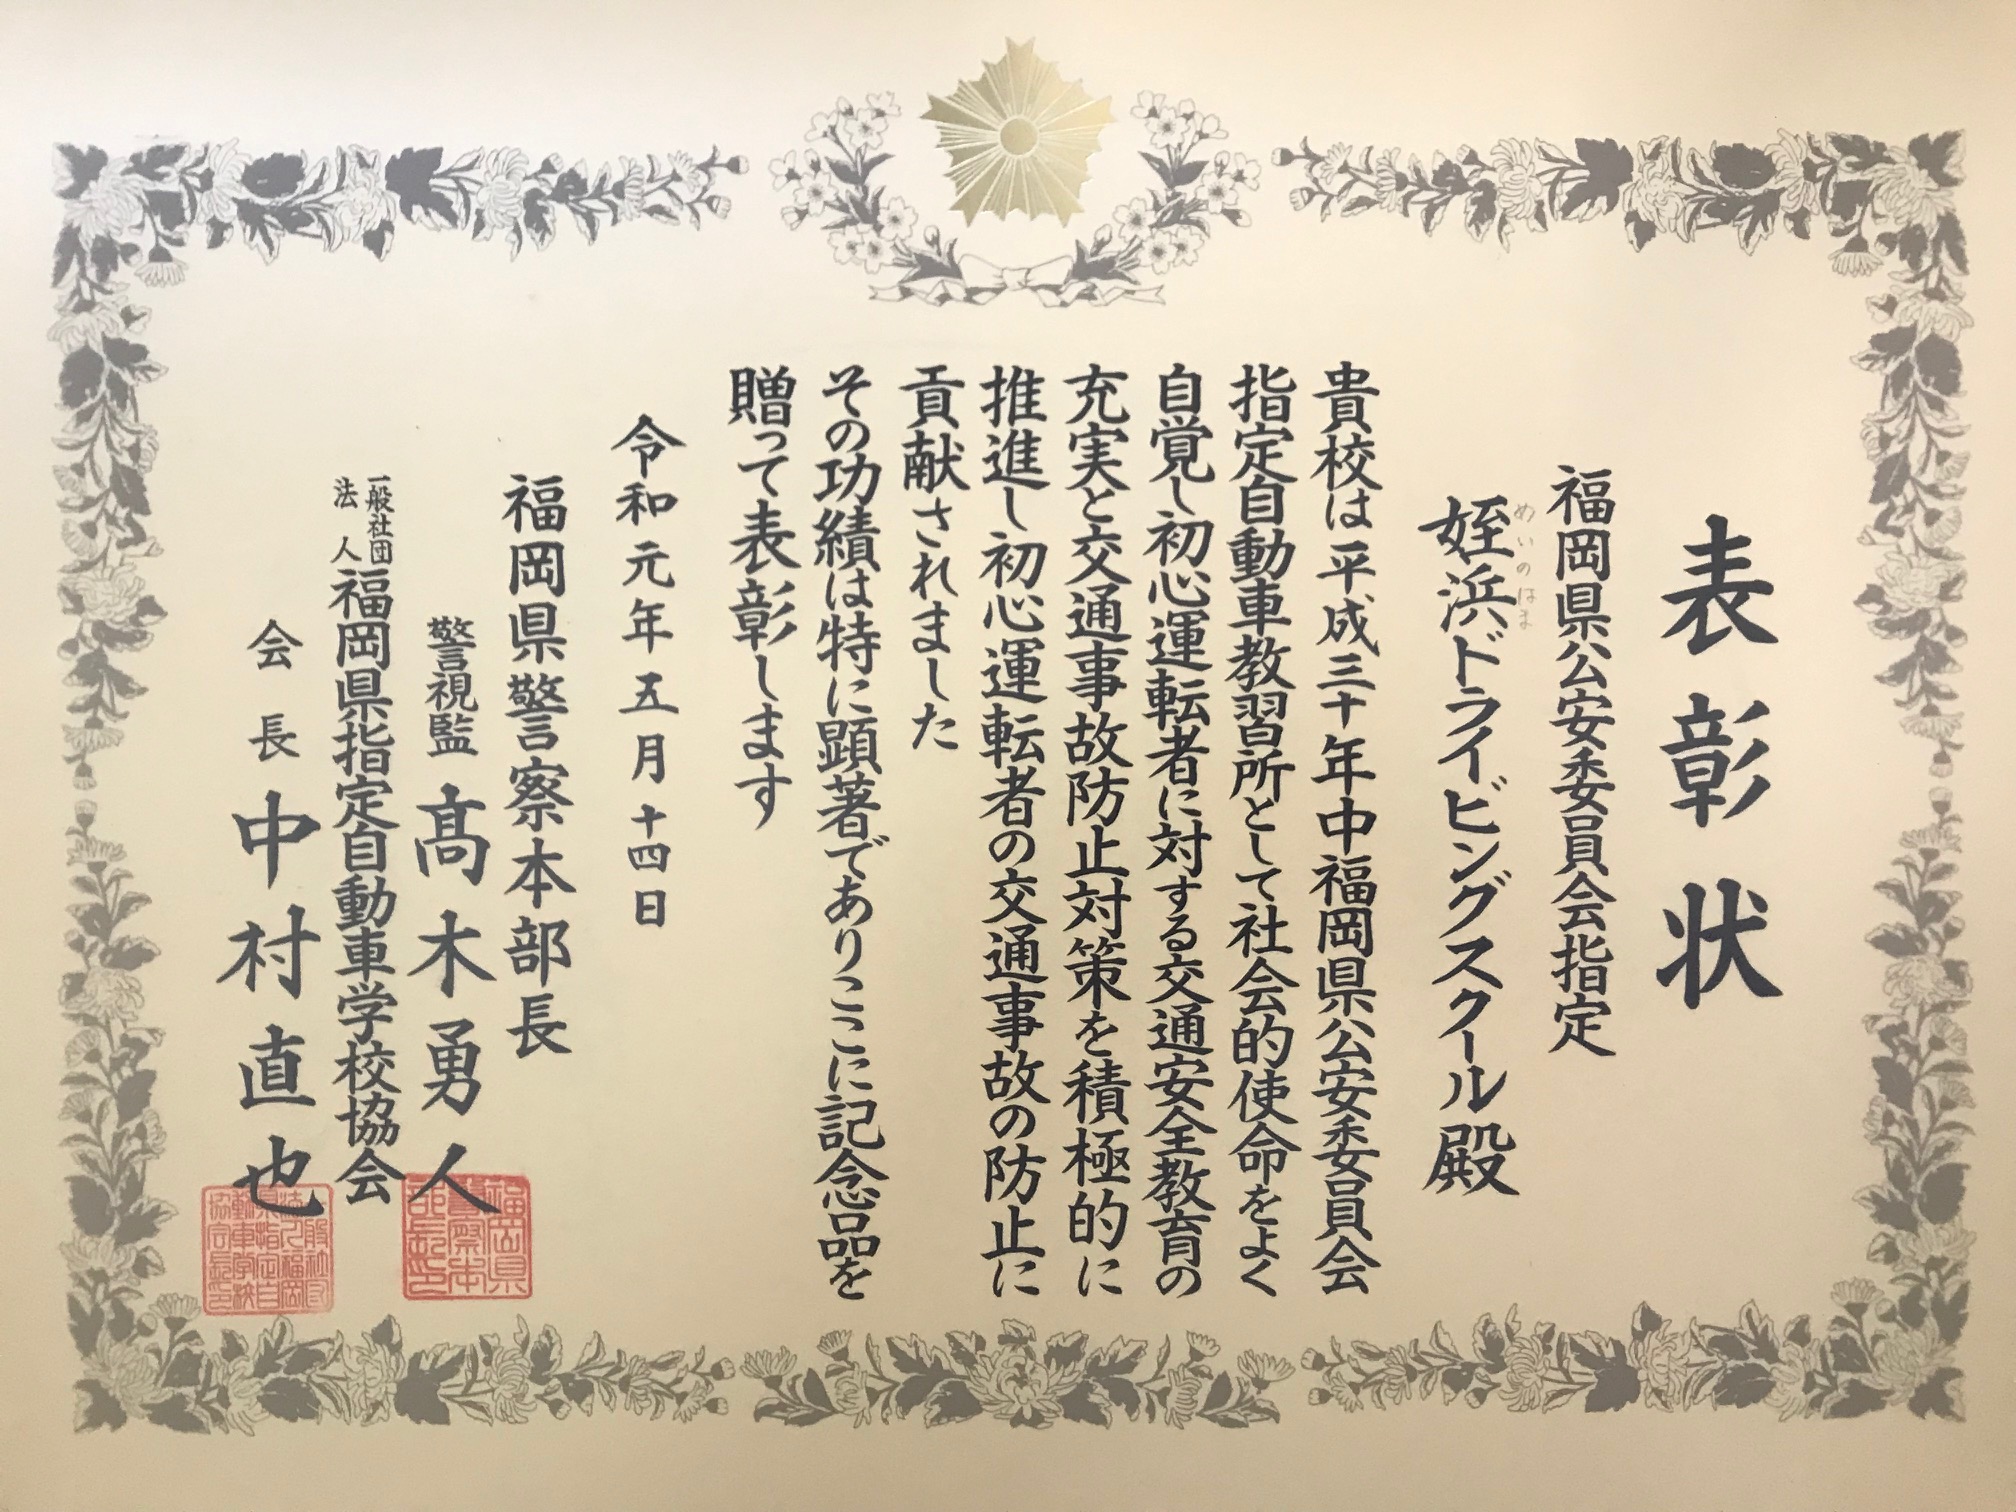 表彰状
福岡県公安委員会指定
姪浜ドライビングスクール殿
めいのはま
貴校は平成三十年中福岡県公安委員会
指定自動車教習所として社会的使命をよく
自覚し初心運転者に対する交通安全教育の
充実と交通事故防止対策を積極的に
推進し初心運転者の交通事故の防止に
貢献されました
その功績は特に顕著でありここに記念品を
贈って表彰します
令和元年五月十四日
福岡県警察本部長
警視監 髙木勇人
一般社団法人福岡県指定自動車学校協会
会長 中村直也
福岡県警察本部長印
一般社団法人福岡県指定自動車学校協会長印